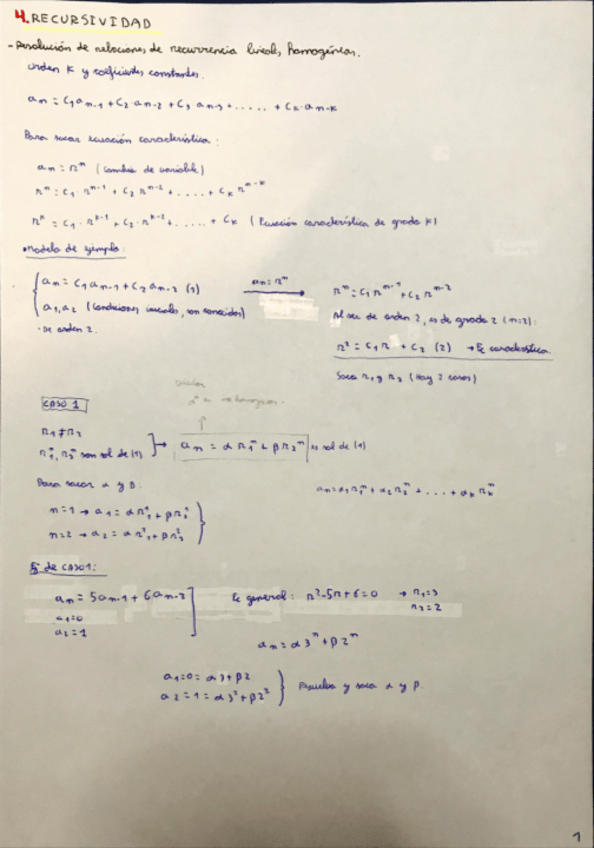 4. RECURSIVIDAD
- Resolución de relaciones de recurrencia lineales, homogéneas.
orden K y coeficientes constantes.
an = C1 an-1 + C2 an-2 + C3 an-3 + ..... + CK. an-K
Para sacar ecuación característica:
an = r^n (cambio de variable)
r^n = C1. r^n-1 + C2 r^n-2 + .... + CK r^n-K
r^K = C1. r^K-1 + C2. r^K-2 + .... + CK (Ecuación característica de grado K)
• Modelo de ejemplo:
{ an = C1 an-1 + C2 an-2 (1)
a1, a2 (condiciones iniciales, son conocidos)
- De orden 2.
an = r^n →
r^n = C1 r^n-1 + C2 r^n-2
Al ser de orden 2, es de grado 2 (n=2):
r² = C1 r + C2 (2) → Ec característica.
Saco r1 y r2 (Hay 2 casos)
CASO 1
r1 ≠ r2
r1^n, r2^n son sol de (1) ] → an = α r1^n + β r2^n es sol de (1)
Para sacar α y β:
n=1 → a1 = α r1^1 + β r2^1
n=2 → a2 = α r1^2 + β r2^2 }
an = α1 r1^n + α2 r2^n + ... + αK rK^n
Ej de CASO 1:
an = 5an-1 + 6an-2
a1=0
a2=1 ]
Ec general: r²-5r+6=0 → r1=3
r2=2
an = α 3^n + β 2^n
a1=0 = α 3 + β 2
a2=1 = α 3² + β 2² } Resuelvo y saco α y β.
1